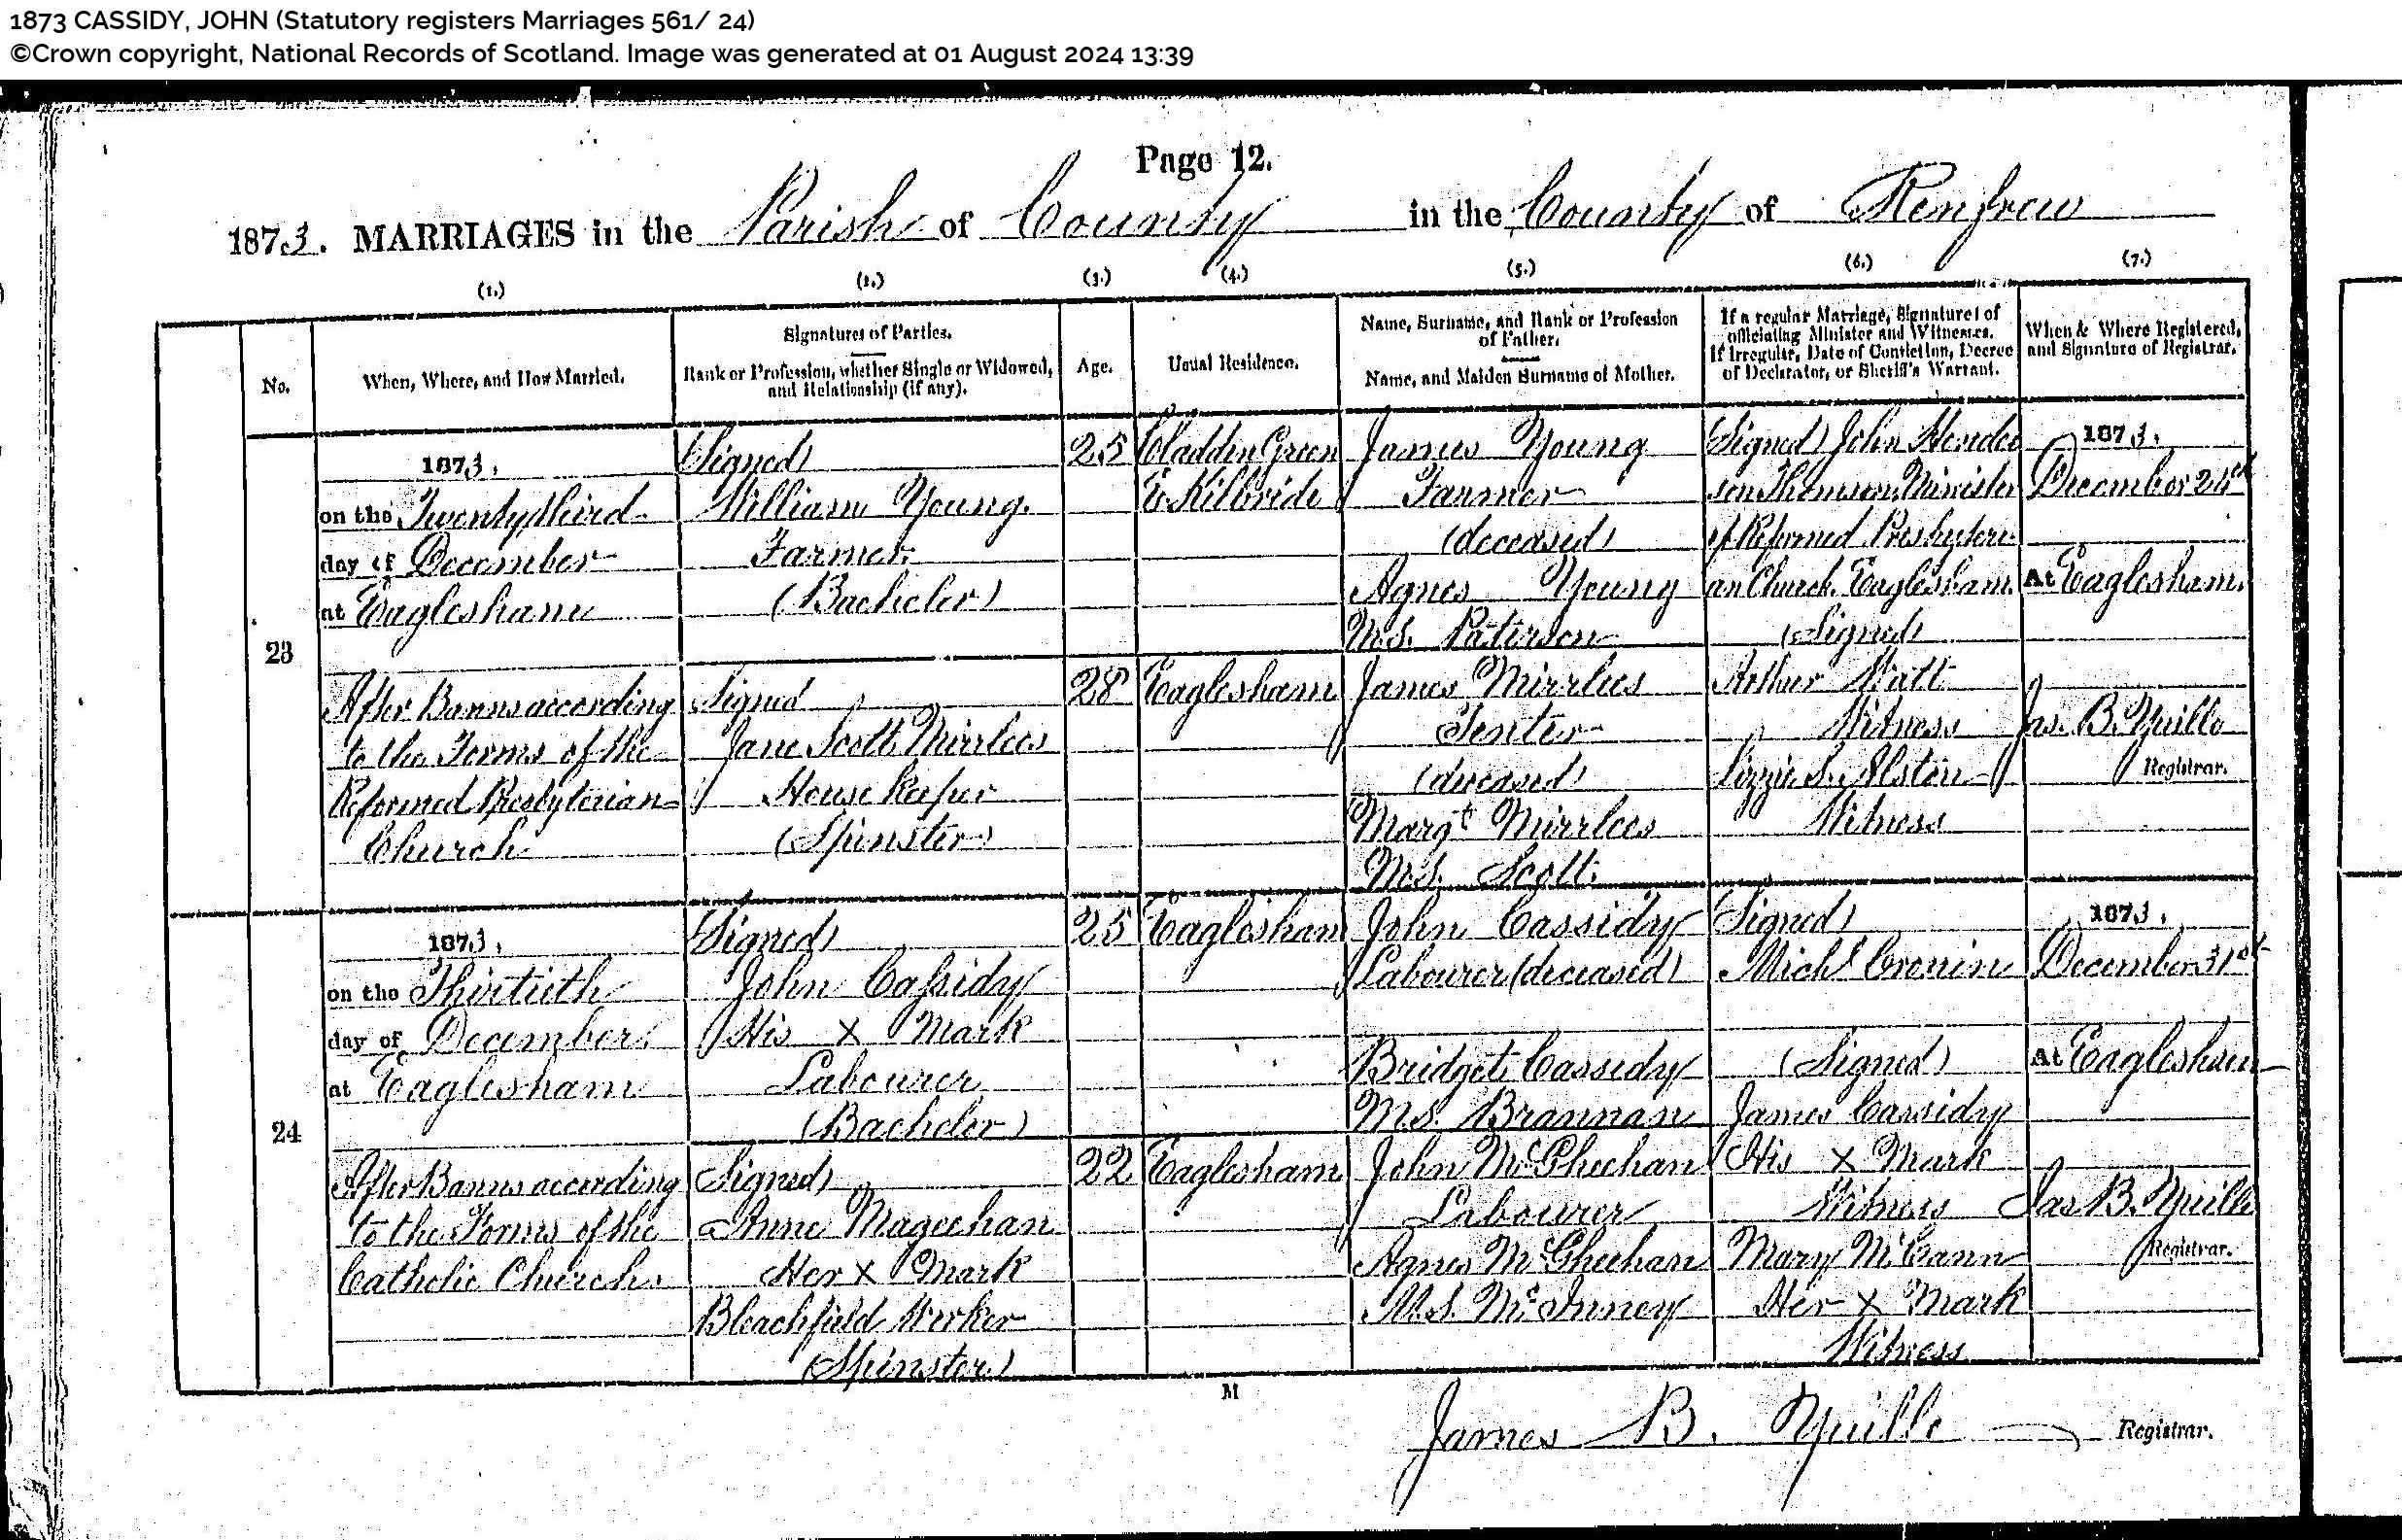 1873 CASSIDY, JOHN (Statutory registers Marriages 561/ 24)
©Crown copyright, National Records of Scotland. Image was generated at 01 August 2024 13:39
Page 12.
1873. MARRIAGES in the Parish of County in the County of Renfrew
(1.) (2.) (3.) (4.) (5.) (6.) (7.)
No.
When, Where, and How Married.
Signatures of Parties.
Rank or Profession, whether Single or Widowed,
and Relationship (if any).
Age.
Usual Residence.
Name, Surname, and Rank or Profession
of Father.
Name, and Maiden Surname of Mother.
If a regular Marriage, Signatures of
officiating Minister and Witnesses.
If Irregular, Date of Conviction, Decree
of Declarator, or Sheriff's Warrant.
When & Where Registered,
and Signature of Registrar.
23
1873.
on the Twenty third
day of December
at Eaglesham
After Banns according
to the Forms of the
Reformed Presbyterian
Church
(Signed)
William Young.
Farmer
(Bachelor)
Signed
Jane Scott Mirrlees
House keeper
(Spinster)
25
28
Cladden Green
E. Kilbride
Eaglesham
James Young
Farmer
(deceased)
Agnes Young
M.S. Paterson
James Mirrlees
Tenter
(deceased)
Margt Mirrlees
M.S. Scott.
(Signed) John Hender
son Thomson Minister
of Reformed Presbyteri
an Church. Eaglesham.
(Signed)
Arthur Watt
Witness
Lizzie S. Alston
Witness
1873.
December 24th
At Eaglesham.
Jas. B. Yuille
Registrar.
24
1873.
on the Thirtieth
day of December.
at Eaglesham
After Banns according
to the Forms of the
Catholic Church.
(Signed)
John Cassidy
His X Mark
Labourer
(Bachelor)
Signed)
Anne Mageehan
Her X Mark
Bleachfield Worker
(Spinster)
25
22
Eaglesham
Eaglesham
John Cassidy
Labourer (deceased)
Bridget Cassidy
M.S. Brannan
John McGheehan
Labourer
Agnes McGheehan
M.S. McInney
(Signed)
Michl Cronin
(Signed)
James Cassidy
His X Mark
Witness
Mary McCann
Her X Mark
Witness
1873.
December 31st
At Eaglesham
Jas B. Yuille
Registrar.
M
James B. Yuille Registrar.